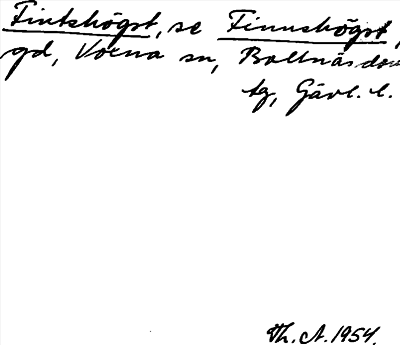 Fintshögst, se Finnshögst,
gd, Voxna sn, Bollnäs dom
tg, Gävl. l.
Th. A. 1954.